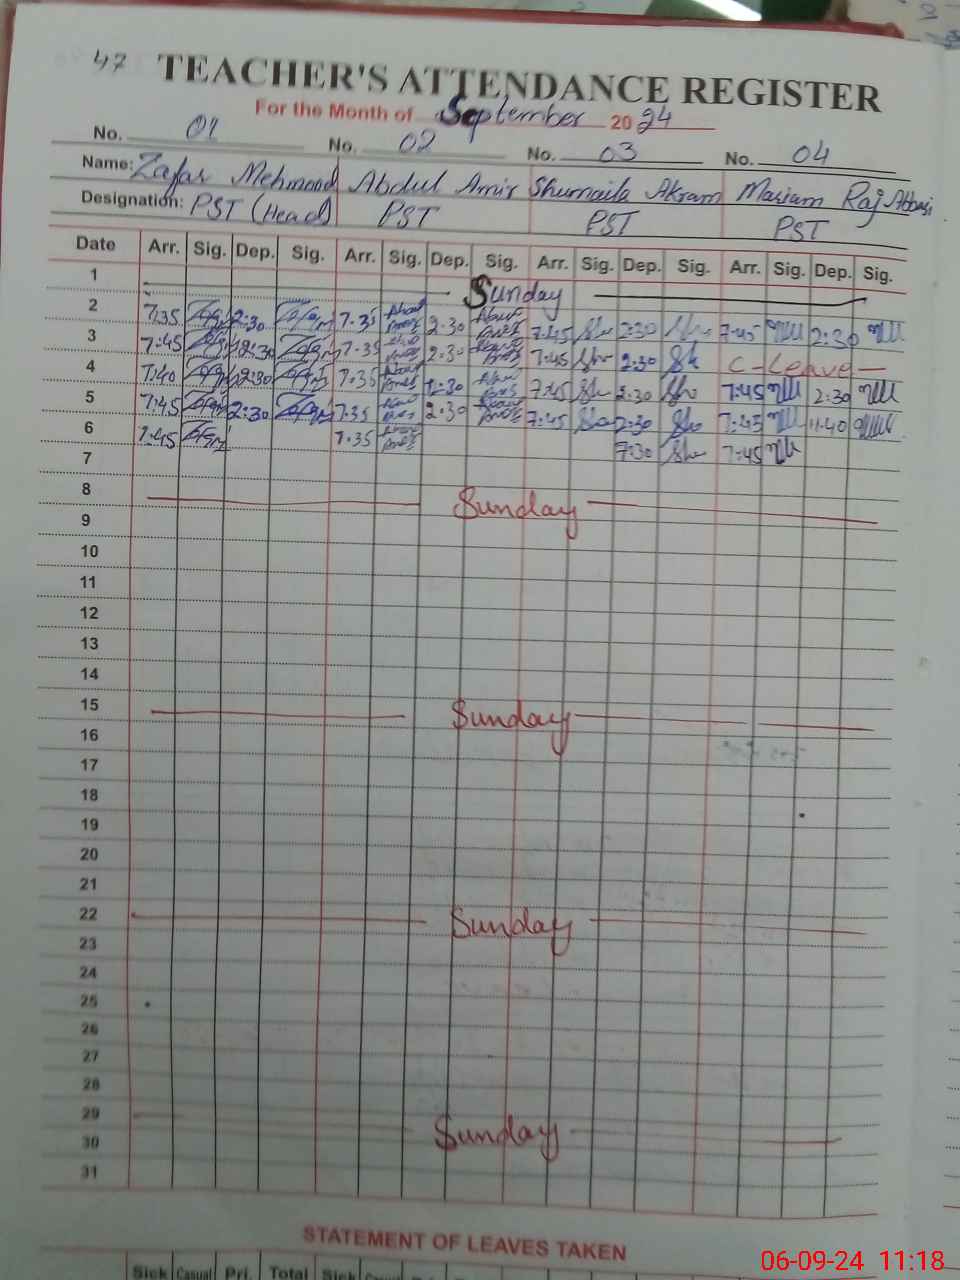 47
TEACHER'S ATTENDANCE REGISTER
For the Month of September 2024
No. 01 No. 02 No. 03 No. 04
Name: Zafar Mehmood Abdul Amir Shumaila Akram Mariam Raj Abbasi
Designation: PST (Head) PST PST PST
Date Arr. Sig. Dep. Sig. Arr. Sig. Dep. Sig. Arr. Sig. Dep. Sig. Arr. Sig. Dep. Sig.
1 Sunday
2 7:35 2:30 7:35 2:30 7:45 2:30 7:45 2:30
3 7:45 2:30 7:35 2:30 7:45 2:30 C-Leave
4 7:40 2:30 7:35 2:30 7:45 2:30 7:45 2:30
5 7:45 2:30 7:35 2:30 7:45 2:30 7:45 11:40
6 7:45 7:35 7:30 7:45
7
8 Sunday
9
10
11
12
13
14
15 Sunday
16
17
18
19
20
21
22 Sunday
23
24
25
26
27
28
29 Sunday
30
31
STATEMENT OF LEAVES TAKEN
Sick Casual Pri. Total Sick
06-09-24 11:18